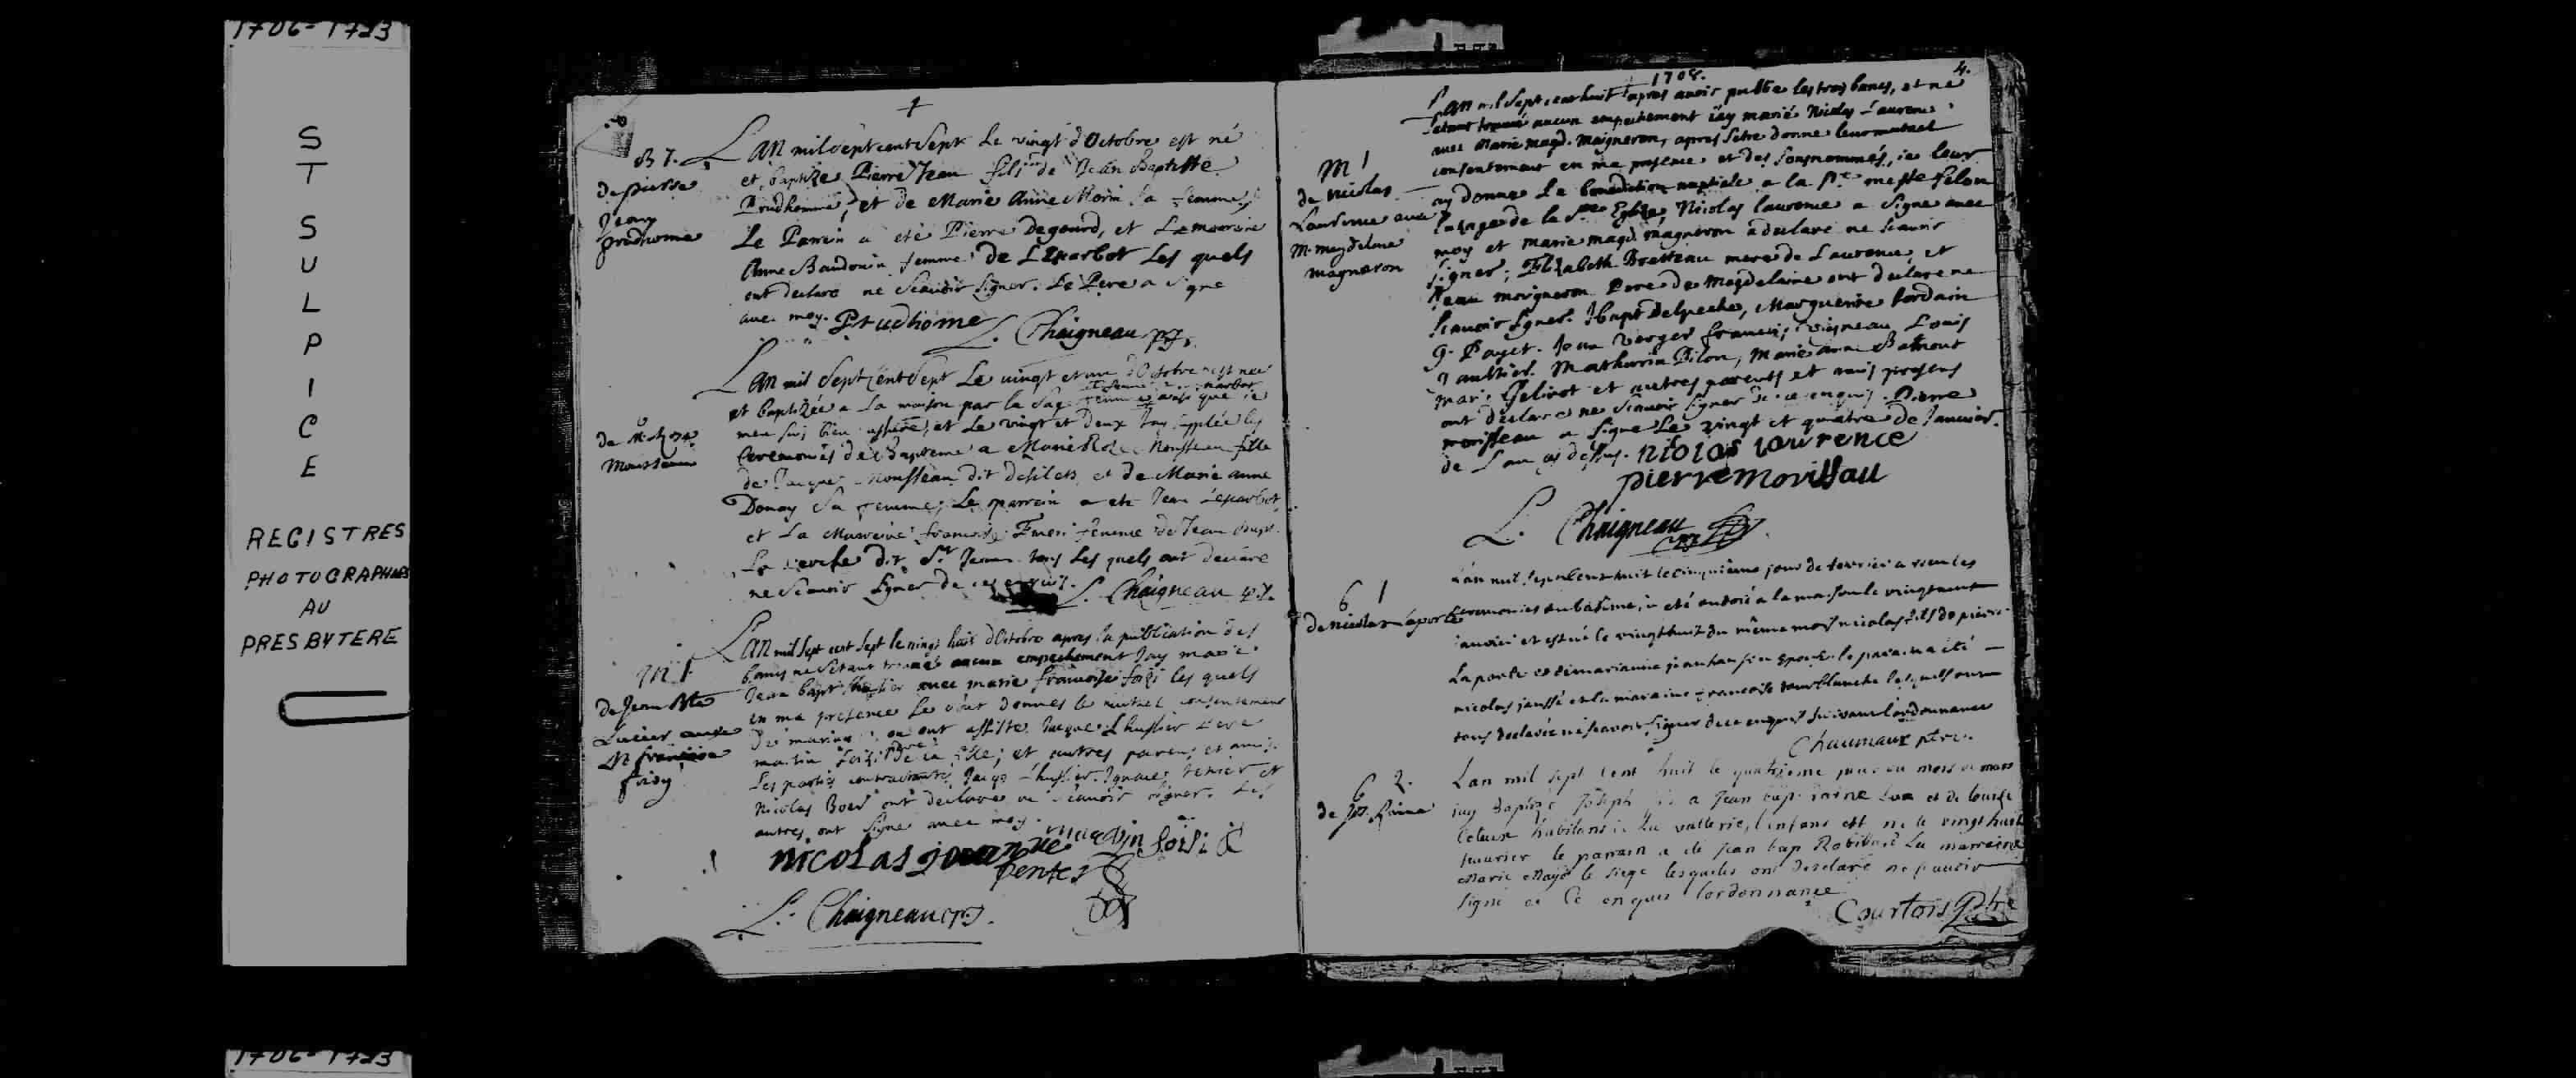 1706-1723
ST SULPICE
REGISTRES
PHOTOGRAPHIES
AU
PRESBYTERE
1706-1723
B 7.
de pierre
Jean
prudhome
Lan mil sept cent Sept Le vingt d'Octobre est né
et baptize Pierre Jean fils de Jean Baptiste
Prudhomme, et de Marie Anne Morin sa femme,
Le Parrein a eté Pierre Degourd, et La marreine
Anne Baudouin femme de L'Escarbot Les quels
ont declaré ne Scavoir Signer. Le Pere a Signe
avec moy. Prudhome
L. Chaigneau ptr.
de M. Roze
Mousseau
Lan mil Sept Cent Sept Le vingt et un d'Octobre est née
et baptizée a La maison par la Sage femme ainsi que je
me suis bien assuré, et Le vingt et deux Jay Supplée les
Ceremonies de Bapteme a Marie Roze Mousseau fille
de Jacques Mousseau dit Desilets et de Marie anne
Donay Sa femme; Le parrein a eté Jean Lescarbot,
et La Marreine femme de Jean
dit St. Jean tous Les quels ont declare
ne Scavoir Signer de ce enquis. L. Chaigneau
M 1
de Jean Bte
avec
M françoise
foizy
Lan mil Sept cent Sept le vingt huit d'Octobre apres la publication des
bancs ne Setant trouvé aucun empechement Jay marié
Jean bapt. avec marie françoise foizi les quels
en ma presence Se sont donnes le mutuel consentement
de mariage ont assisté Jacques Lhussier Pere
martin foizi pere de la fille; et autres parens et amis.
Les parties contractantes, Jacq. Lhussier, Ignace et
Nicolas ont declaré ne Scavoir Signer. Les
autres ont Signé avec moy.
nicolas martin foisi
L. Chaigneau
1708.
4.
M 1
de nicolas
Laurence avec
M. magdelene
magneron
Lan mil Sept cent huit apres avoir publie les trois bancs, et ne
Setant trouvé aucun empechement Jay marié Nicolas Laurence
avec Marie magd. Maigneron, apres Setre donne leur mutuel
consentement en ma presence et des Sousnommés, je leur
ay donne La benediction nuptiale a la Ste messe Selon
l'usage de la Ste Eglize, Nicolas laurence a Signe avec
moy et marie magd. magneron a declaré ne Scavoir
Signer; Elizabeth Bretteau mere de Laurence, et
Jean maigneron Pere de Magdelaine ont declare ne
Scavoir Signer. Jbapt Delpeche, Marguerite Jordain
G. Payet. Jean Verger francois Vigneau Louis
Gaultier. Mathurin Pilon, Marie anne
Mari. Gelinot et autres parents et amis presens
ont declaré ne Scavoir Signer de ce enquis. Pierre
morisseau a Signe Le vingt et quatre de Janvier.
de Lan cy dessus. nicolas lourence
pierre morissau
L. Chaigneau
b 1
de nicolas Laporte
Lan mil Sept cent huit le cinquieme jour de fevrier a receu les
ceremonies du batême, a eté ondoié a la maison le vingt neuf
janvier et est né le vingt huit du même mois nicolas fils de pierre
La porte et de marianne son epouse. le parain a été
nicolas et la maraine francoise lesquels ont
tous declaré ne scavoir signer de ce enquis suivant l'ordonnance
Chaumaux ptre.
b 2.
de Jos. Raine
Lan mil sept cent huit le quatrieme jour du mois de mars
jay baptize Joseph a Jean bap. et de louise
habitans de La valterie, l'enfant est né le vingt huit
fevrier le parrain a eté Jean bap Robillard La marreine
Marie le siege lesquelles ont declaré ne scavoir
signe de Ce enquis lordonnance
Courtois Ptre